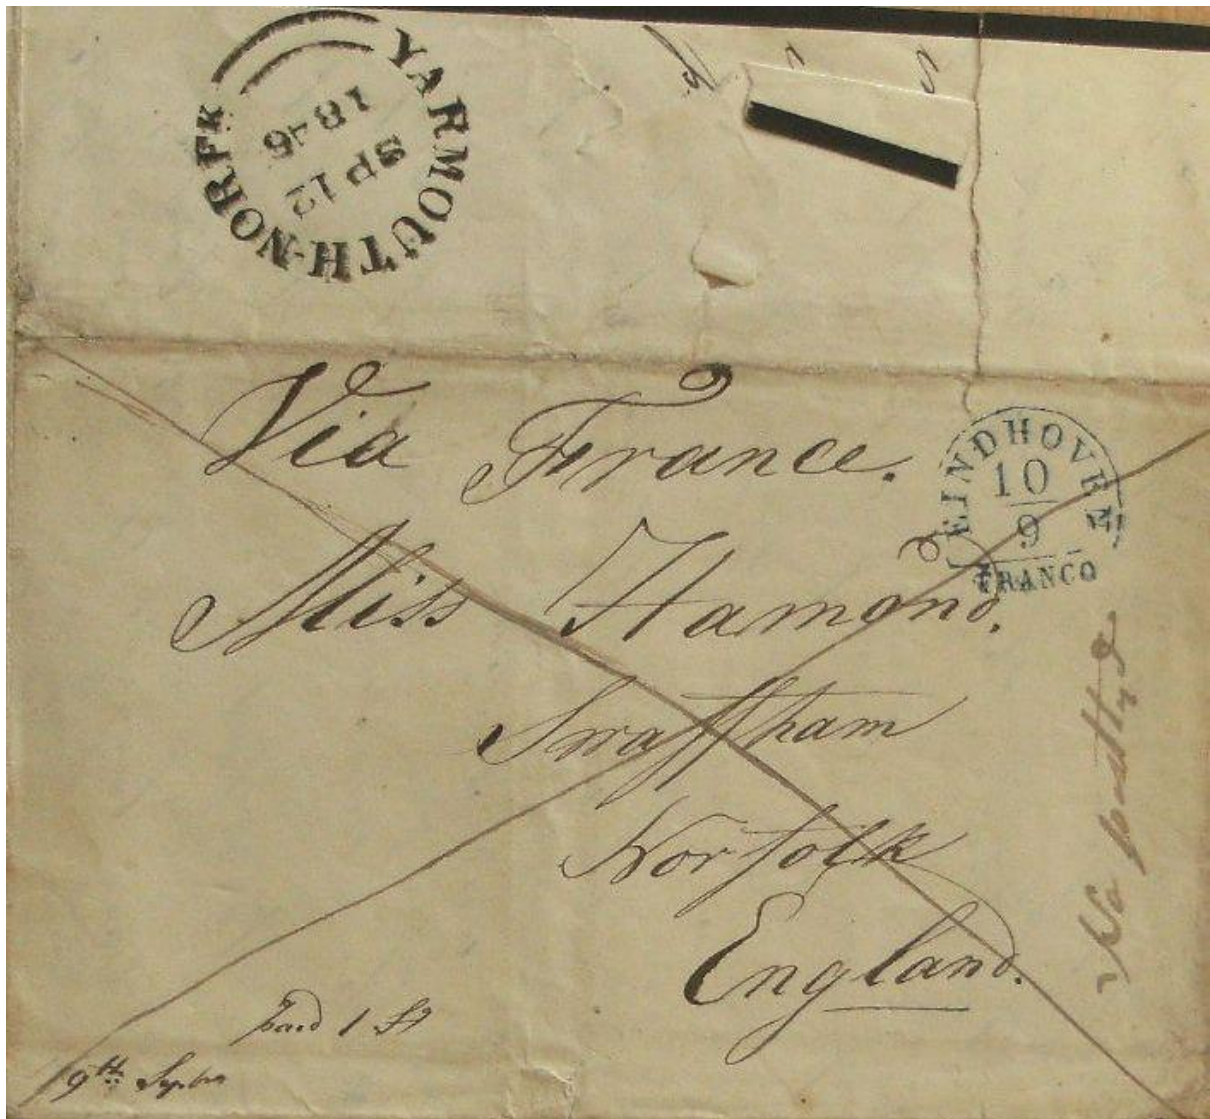 YARMOUTH-NORFK
SP 12
1846
Via France.
EINDHOVEN
10
9
FRANCO
Miss Hamond.
Swaffham
Norfolk
England.
paid 1
9th Septbr